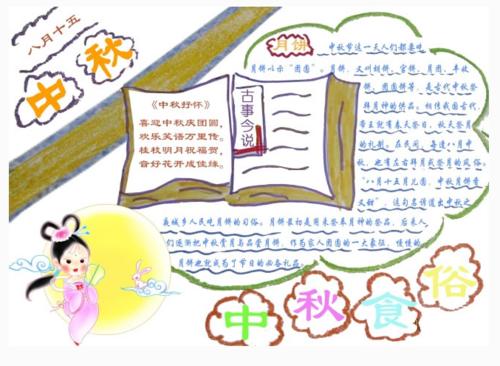 八月十五
中秋
《中秋抒怀》
喜迎中秋庆团圆，
欢乐笑语万里传。
桂枝明月祝福贺，
音好花开成佳缘。
古事今说
月饼
中秋节这一天人们都要吃
月饼以示“团圆”。月饼，又叫胡饼、宫饼、月团、丰收
饼、团圆饼等，是古代中秋祭
拜月神的供品。相传我国古代，
帝王就有春天祭日、秋天祭月
的礼制。在民间，每逢八月中
秋，也有左右拜月或祭月的风俗。
“八月十五月儿圆，中秋月饼香
又甜”，这句名谚道出中秋之
夜城乡人民吃月饼的习俗。月饼最初是用来祭奉月神的祭品，后来人
们逐渐把中秋赏月与品尝月饼，作为家人团圆的一大象征，慢慢的
月饼也就成为了节日的必备礼品。
中秋食俗